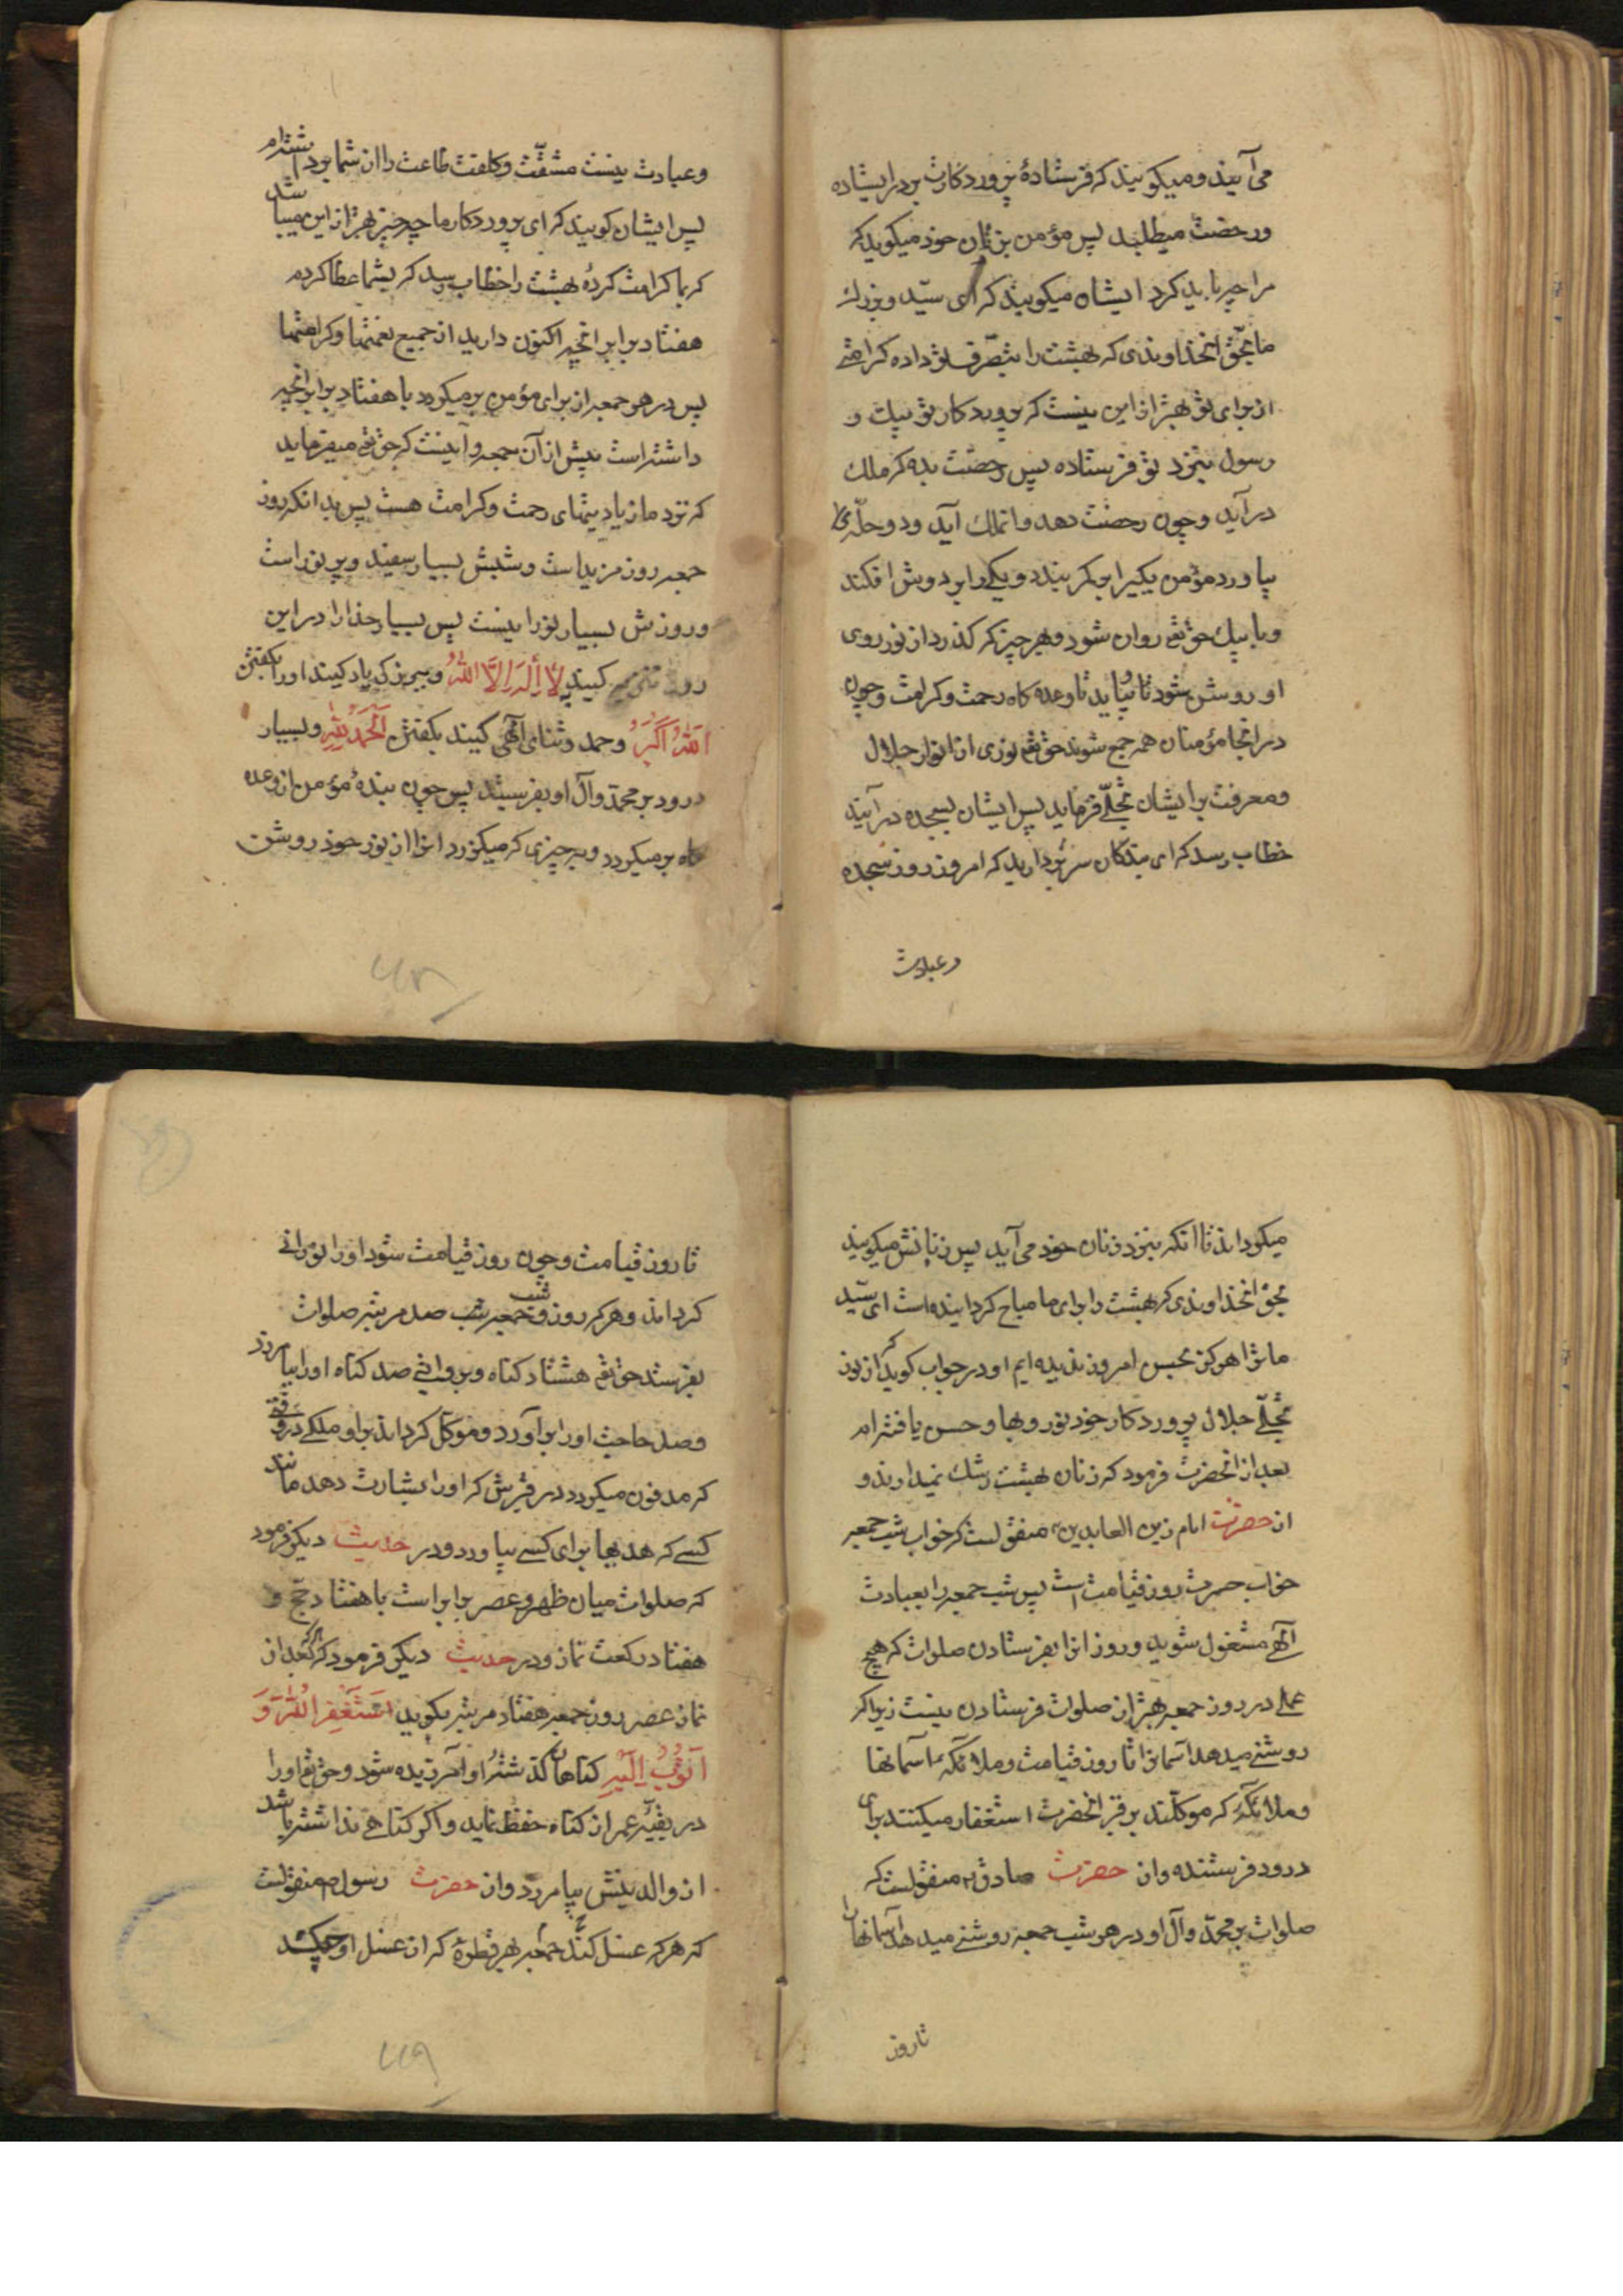 می آیند و میکویند که فرستادهٔ پروردکارت بردر ایستاده
و رخصت میطلبد پس مؤمن بزنان خود میکوید که
مرا چه باید کرد ایشان میکویند که ای سیّد و بزرك
ما بحقّ انخداوندی که بهشت را بتصرّف تو داده کرامتی
از برای تو بهتر ازین نیست که پروردکار تو پیك و
رسول بنزد تو فرستاده پس رخصت بده که ملك
درآید و چون رخصت دهد و انملك آید و دو حلّه
بیاورد مؤمن یکیرا بر کمر بندد و یکیرا بر دوش افکند
و با پیك حق تع روان شود و بهر چیز که کذرد از نور روی
او روشن شود تا بیاید تا وعده کاه رحمت و کرامت و چون
در انجا مؤمنان همه جمع شوند حق تع نوری از انوار جلال
و معرفت بر ایشان تجلّی فرماید پس ایشان بسجده درآیند
خطاب رسد که ای بندکان سر بردارید که امروز روز سجده
و عبادت
و عبادت نیست مشقّت و کلفت طاعت را از شما برداشته‌ام
پس ایشان کویند که ای پروردکار ما چه چیز بهتر از این میباشد
که بما کرامت کردهٔ بهشت را خطاب رسد که بشما عطا کردم
هفتاد برابر انچه اکنون دارید از جمیع نعمتها و کرامتها
پس در هر جمعه از برای مؤمن بر میکردد با هفتاد برابر انچه
داشته است پیش از آن جمعه و آینست که حق تع میفرماید
که نزد ما زیادیتهای رحمت و کرامت هست پس بدانکه روز
جمعه روز مزید است و شبش بسیار سفید و پر نور است
و روزش بسیار نورانیست پس بسیار خدا را در این
روز تنزیه کنید لَا اِلٰهَ اِلَّا اللّٰهُ و ببزرکی یاد کنید او را بکفتن
اَللّٰهُ اَکْبَرُ و حمد و ثنای آلهی کنید بکفتن اَلْحَمْدُ لِلّٰهِ و بسیار
درود بر محمّد و آل او بفرستید پس چون بندهٔ مؤمن از وعده
کاه بر میکردد و بهر چیزی که میکذرد انرا از نور خود روشن
۴۸
میکرداند تا انکه بنزد زنان خود می آید پس زنانش میکویند
بحق انخداوندی که بهشت را برای ما مباح کردانیده است ای سیّد
ما ترا هرکز بحسن امروز ندیده ایم او در جواب کوید که از نور
تجلّی جلال پروردکار خود نور و بها و حسن یافته ام
بعد از ان حضرت فرمود که زنان بهشت رشك نمیدارند و
از حضرت امام زین العابدین ع منقولست که خواب شب جمعه
خواب حسرت روز قیامت است پس شب جمعه را بعبادت
آلهی مشغول شوید و روز انرا بفرستادن صلوات که هیچ
عملی در روز جمعه بهتر از صلوات فرستادن نیست زیرا که
روشنی میدهد آسمانرا تا روز قیامت و ملائکهٔ آسمانها
و ملائکهٔ که موکّلند بر قبر انحضرت استغفار میکنند برای
درود فرستنده و از حضرت صادق ع منقولست که
صلوات بر محمّد و آل او در هر شب جمعه روشنی میدهد آسمانها را
تا روز
تا روز قیامت و چون روز قیامت شود او را نورانی
کرداند و هر که روز و شب جمعه صد مرتبه صلوات
بفرستد حق تع هشتاد کناه و بروایتی صد کناه او را بیامرزد
و صد حاجت او را بر آورد و موکّل کرداند بر او ملکی در وقتی
که مدفون میکردد در قبرش که او را بشارت دهد مانند
کسی که هدیها برای کسی بیاورد و در حدیث دیکر فرمود
که صلوات میان ظهر و عصر برابر است با هفتاد حجّ و
هفتاد رکعت نماز و در حدیث دیکر فرمود که اکر بعد از
نماز عصر روز جمعه هفتاد مرتبه بکوید اَسْتَغْفِرُ اللّٰهَ وَ
اَتُوْبُ اِلَیْهِ کناهان کذشتهٔ او آمرزیده شود و حق تع او را
در بقیّهٔ عمر از کناه حفظ نماید و اکر کناهی نداشته باشد
از والدینش بیامرزد و از حضرت رسول ص منقولست
که هر که غسل کند جمعه بهر قطرهٔ که از غسل او چکد
۴۹